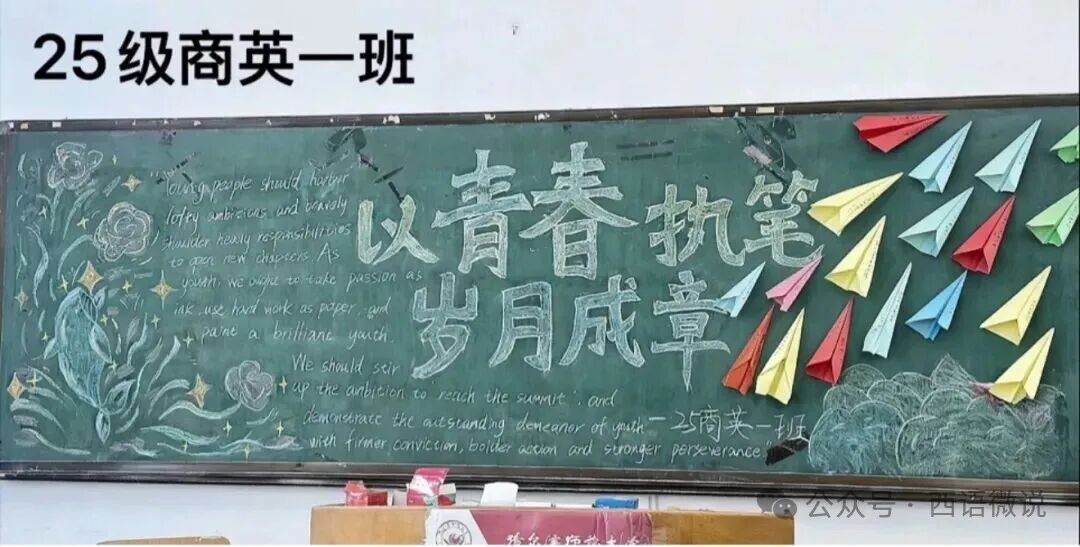 25级商英一班
"Young people should harbor
lofty ambitions and bravely
shoulder heavy responsibilities
to open new chapters. As
youth, we ought to take passion as
ink, use hard work as paper, and
paint a brilliant youth.
We should stir
up the ambition to reach the summit, and
demonstrate the outstanding demeanor of youth
with firmer conviction, bolder action and stronger perseverance."
以青春执笔
岁月成章
一25商英一班
哈尔滨师范大学
公众号·西语微说